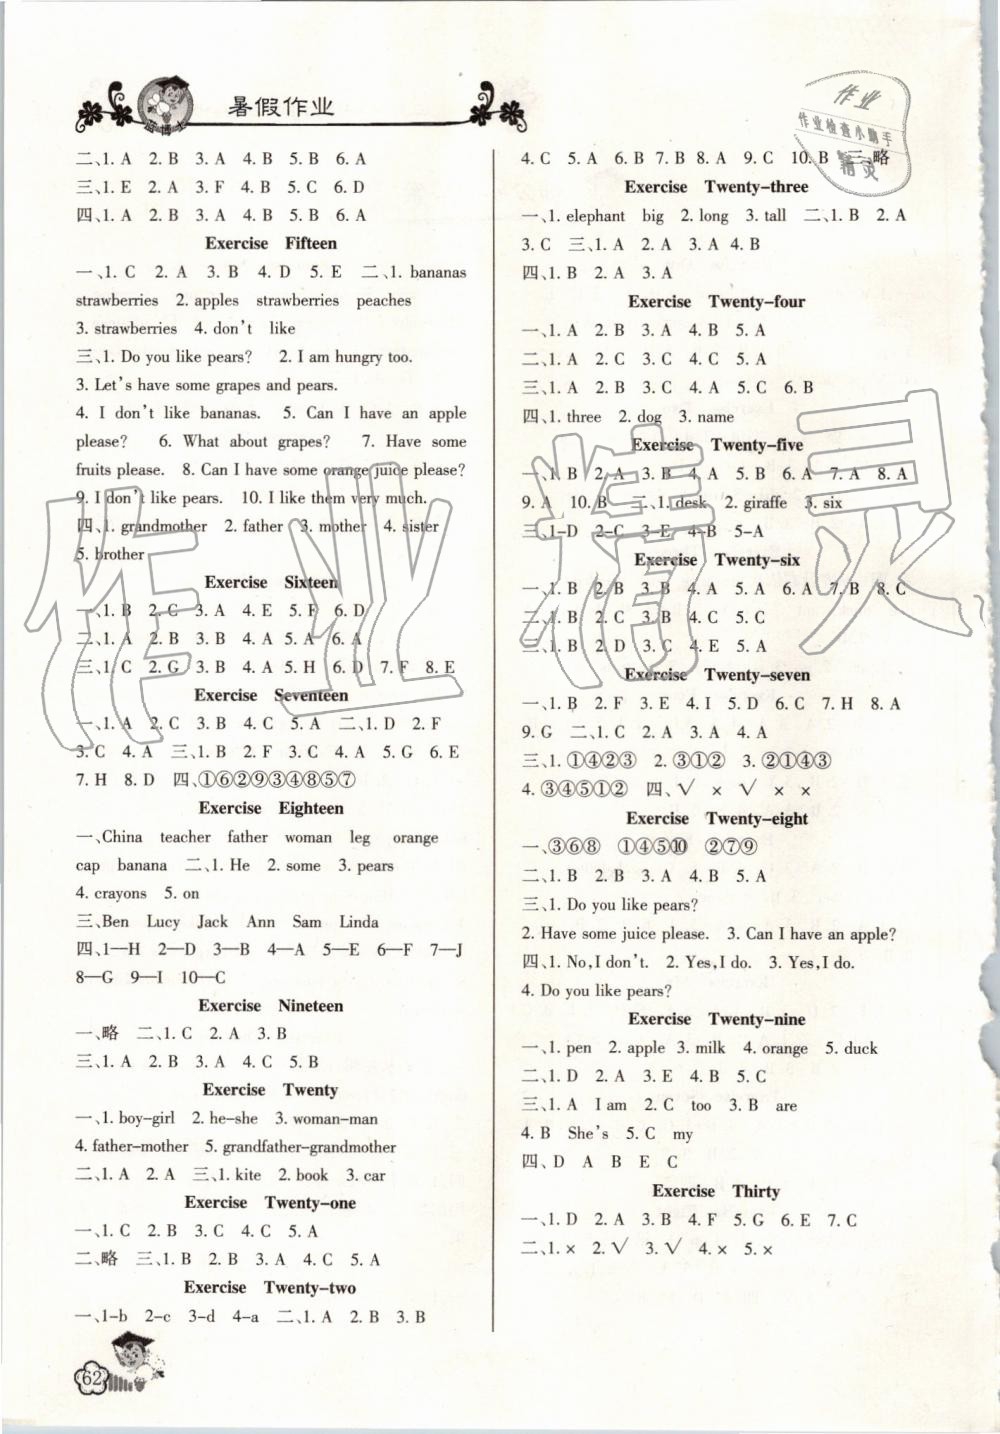 暑假作业
作业
作业检查小助手
精灵
二、1. A 2. B 3. A 4. B 5. B 6. A
三、1. E 2. A 3. F 4. B 5. C 6. D
四、1. A 2. B 3. A 4. B 5. B 6. A
Exercise Fifteen
一、1. C 2. A 3. B 4. D 5. E 二、1. bananas
strawberries 2. apples strawberries peaches
3. strawberries 4. don't like
三、1. Do you like pears? 2. I am hungry too.
3. Let's have some grapes and pears.
4. I don't like bananas. 5. Can I have an apple
please? 6. What about grapes? 7. Have some
fruits please. 8. Can I have some orange juice please?
9. I don't like pears. 10. I like them very much.
四、1. grandmother 2. father 3. mother 4. sister
5. brother
Exercise Sixteen
一、1. B 2. C 3. A 4. E 5. F 6. D
二、1. A 2. B 3. B 4. A 5. A 6. A
三、1. C 2. G 3. B 4. A 5. H 6. D 7. F 8. E
Exercise Seventeen
一、1. A 2. C 3. B 4. C 5. A 二、1. D 2. F
3. C 4. A 三、1. B 2. F 3. C 4. A 5. G 6. E
7. H 8. D 四、①⑥②⑨③④⑧⑤⑦
Exercise Eighteen
一、China teacher father woman leg orange
cap banana 二、1. He 2. some 3. pears
4. crayons 5. on
三、Ben Lucy Jack Ann Sam Linda
四、1—H 2—D 3—B 4—A 5—E 6—F 7—J
8—G 9—I 10—C
Exercise Nineteen
一、略 二、1. C 2. A 3. B
三、1. A 2. B 3. A 4. C 5. B
Exercise Twenty
一、1. boy-girl 2. he-she 3. woman-man
4. father-mother 5. grandfather-grandmother
二、1. A 2. A 三、1. kite 2. book 3. car
Exercise Twenty-one
一、1. C 2. B 3. C 4. C 5. A
二、略 三、1. B 2. B 3. A 4. C 5. A
Exercise Twenty-two
一、1-b 2-c 3-d 4-a 二、1. A 2. B 3. B
4. C 5. A 6. B 7. B 8. A 9. C 10. B 三、略
Exercise Twenty-three
一、1. elephant big 2. long 3. tall 二、1. B 2. A
3. C 三、1. A 2. A 3. A 4. B
四、1. B 2. A 3. A
Exercise Twenty-four
一、1. A 2. B 3. A 4. B 5. A
二、1. A 2. C 3. C 4. C 5. A
三、1. A 2. B 3. C 4. A 5. C 6. B
四、1. three 2. dog 3. name
Exercise Twenty-five
一、1. B 2. A 3. B 4. A 5. B 6. A 7. A 8. A
9. A 10. B 二、1. desk 2. giraffe 3. six
三、1-D 2-C 3-E 4-B 5-A
Exercise Twenty-six
一、1. B 2. B 3. B 4. A 5. A 6. A 7. B 8. C
二、1. B 2. C 3. B 4. C 5. C
三、1. B 2. D 3. C 4. E 5. A
Exercise Twenty-seven
一、1. B 2. F 3. E 4. I 5. D 6. C 7. H 8. A
9. G 二、1. C 2. A 3. A 4. A
三、1. ①④②③ 2. ③①② 3. ②①④③
4. ③④⑤①② 四、√ × √ × ×
Exercise Twenty-eight
一、③⑥⑧ ①④⑤⑩ ②⑦⑨
二、1. B 2. B 3. A 4. B 5. A
三、1. Do you like pears?
2. Have some juice please. 3. Can I have an apple?
四、1. No, I don't. 2. Yes, I do. 3. Yes, I do.
4. Do you like pears?
Exercise Twenty-nine
一、1. pen 2. apple 3. milk 4. orange 5. duck
二、1. D 2. A 3. E 4. B 5. C
三、1. A I am 2. C too 3. B are
4. B She's 5. C my
四、D A B E C
Exercise Thirty
一、1. D 2. A 3. B 4. F 5. G 6. E 7. C
二、1. × 2. √ 3. √ 4. × 5. ×
62
作业精灵